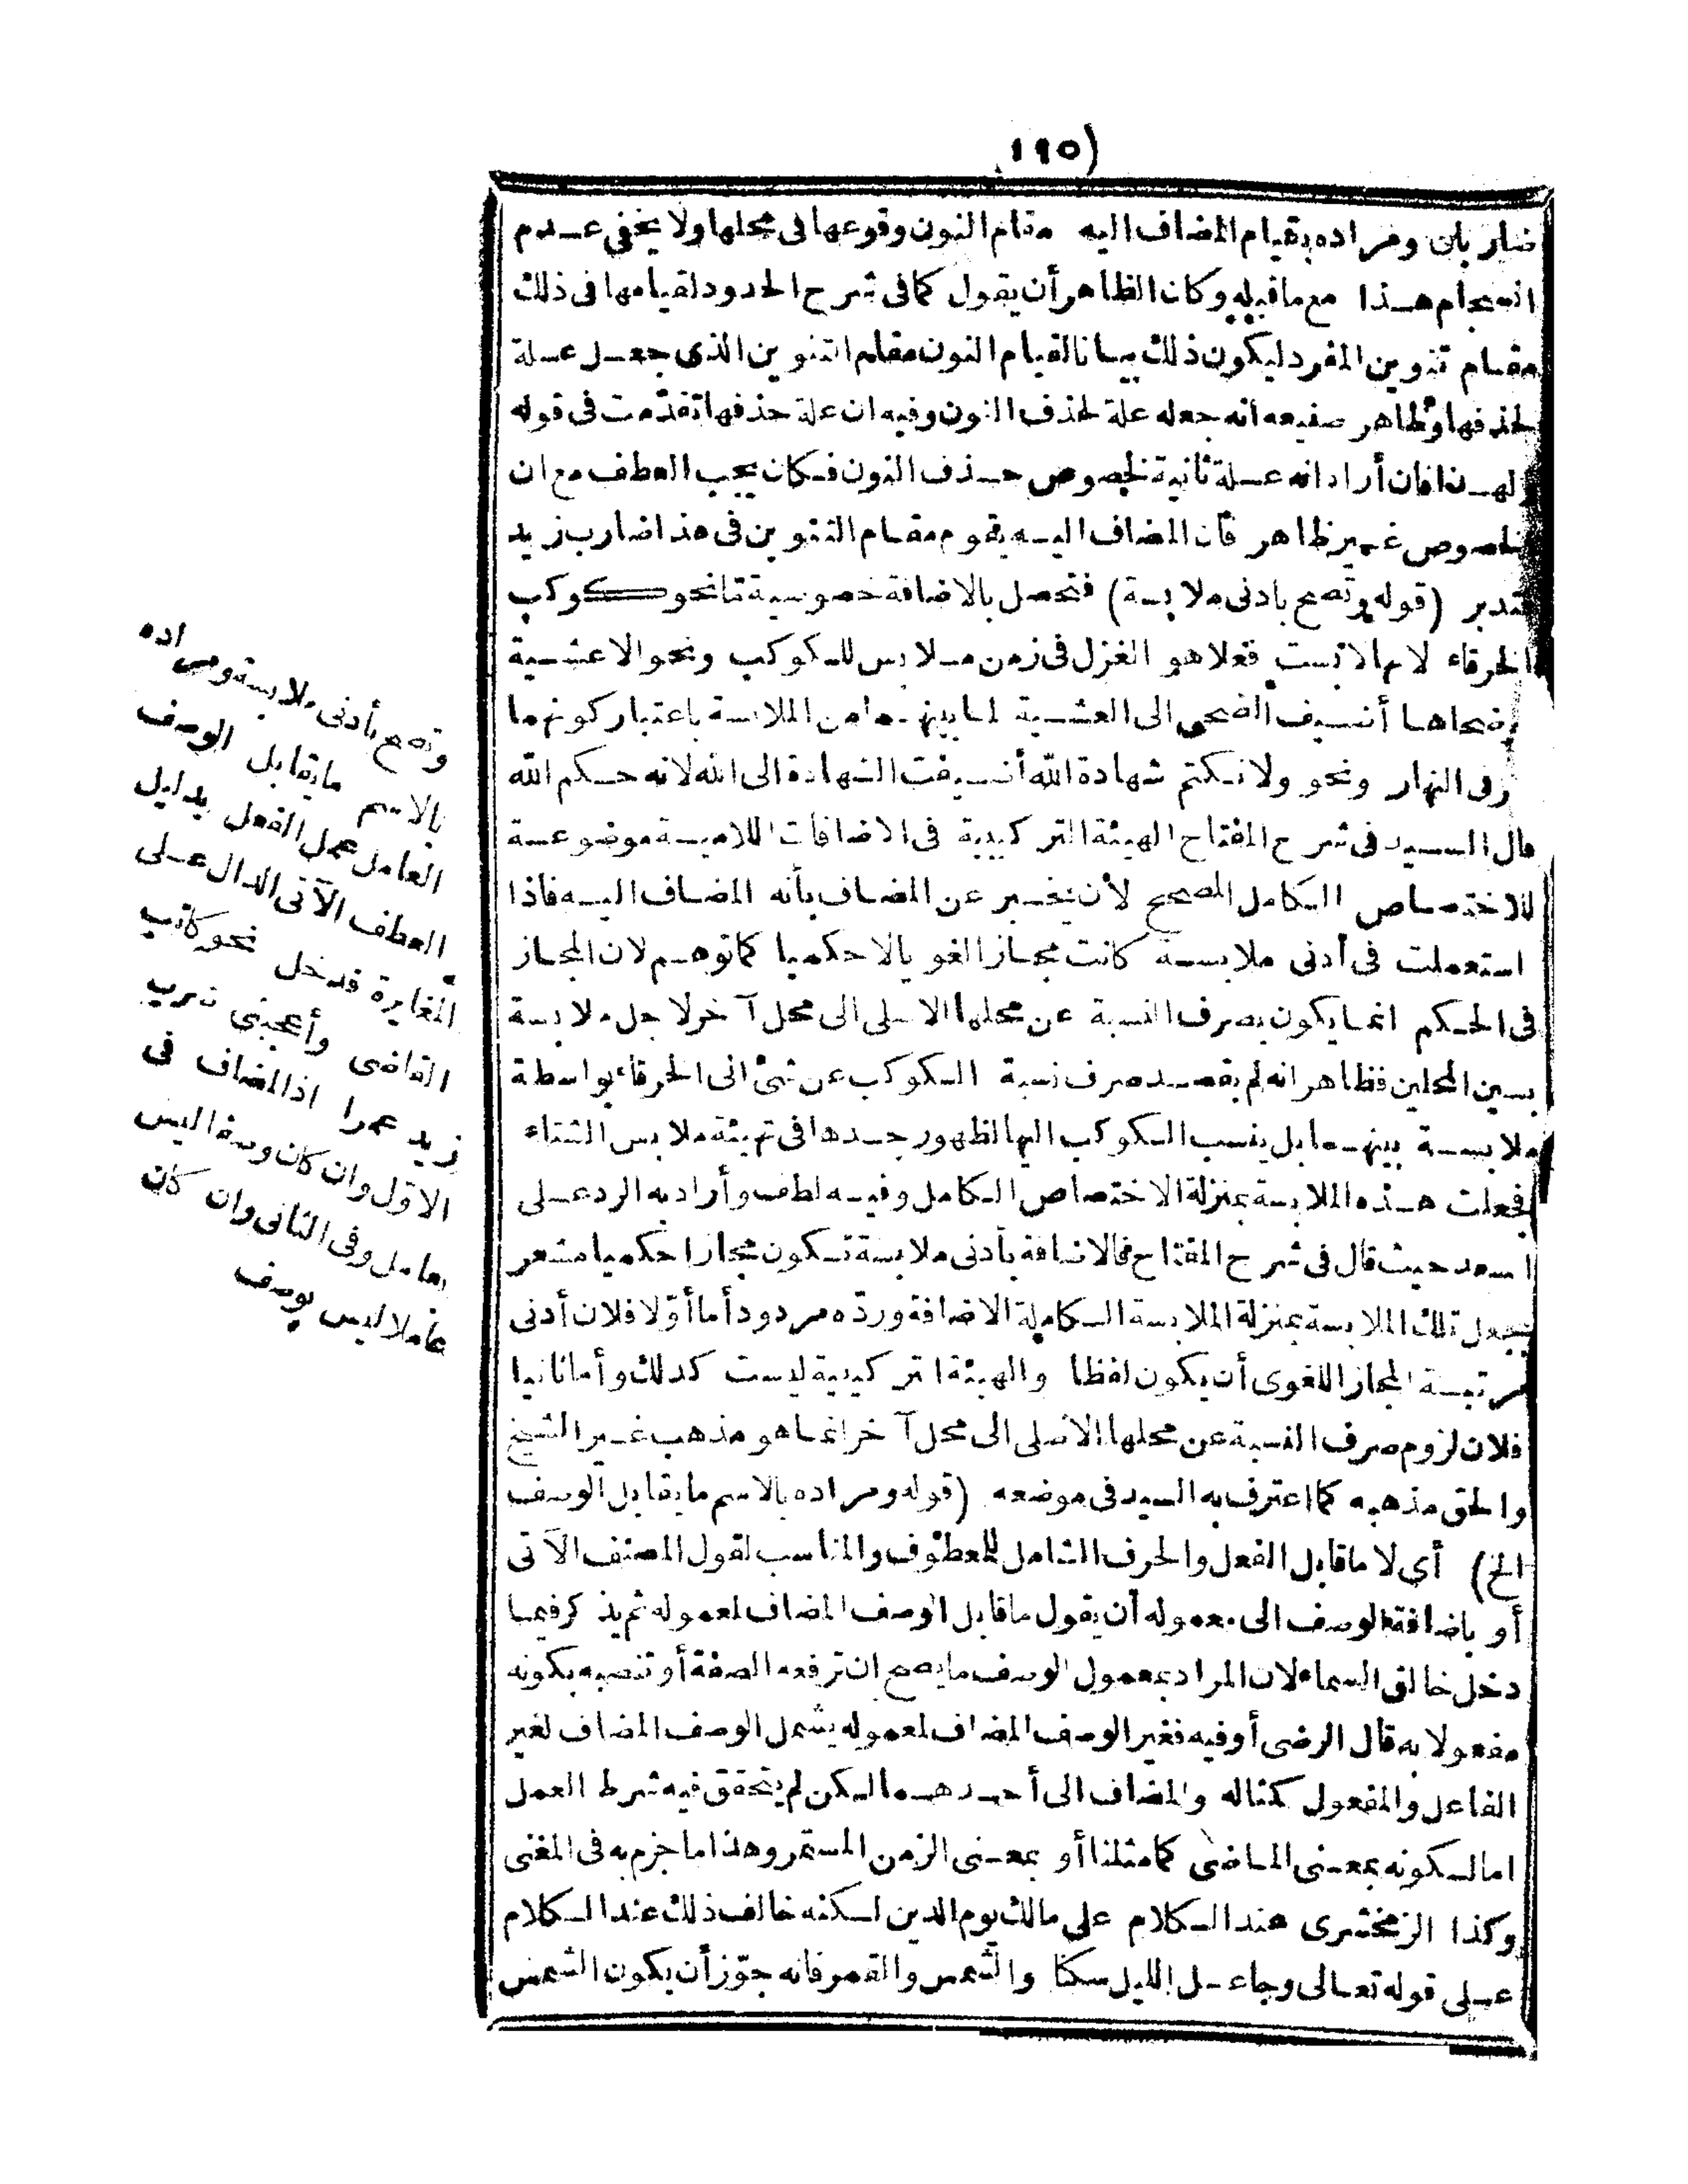 (١٩٥
ضاربان ومراده بقيام المضاف اليه مقام النون وقوعها في محلها ولا يخفى عدم
انسجام هذا مع ما قبله وكان الظاهر أن يقول كما في شرح الحدود لقيامها في ذلك
مقام تنوين المفرد ليكون ذلك بيانا لقيام النون مقام التنوين الذي جعل علة
لحذفها وظاهر صنيعه أنه جعله علة لحذف النون وفيه ان علة حذفها تقدّمت في قوله
ولهذا فان أراد انه علة ثانية لخصوص حذف النون فكان يجب العطف مع ان
الخصوص غير ظاهر فان المضاف اليه يقوم مقام التنوين في هذا ضارب زيد
فتدبر (قوله وتصح بادنى ملابسة) فتحصل بالاضافة خصوصية تما نحو كوكب
الخرقاء لانها لابست فعلا هو الغزل في زمن ملابس للكوكب ونحو الا عشية
أو ضحاها أضيف الضحى الى العشية لما بينهما من الملابسة باعتبار كونهما
في النهار ونحو ولا نكتم شهادة الله أضيفت الشهادة الى الله لانه حكم الله
قال السيد في شرح المفتاح الهيئة التركيبية في الاضافات اللامية موضوعة
للاختصاص الكامل المصحح لأن يخبر عن المضاف بأنه المضاف اليه فاذا
استعملت في أدنى ملابسة كانت مجازا لغويا لا حكميا كما توهم لان المجاز
في الحكم انما يكون بصرف النسبة عن محلها الاصلي الى محل آخر لاجل ملابسة
بين المحلين فظاهر انه لم يقصد صرف نسبة الكوكب عن شئ الى الخرقاء بواسطة
ملابسة بينهما بل ينسب الكوكب اليها لظهور جدها في تهيئة ملابس الشتاء
فجعلت هذه الملابسة بمنزلة الاختصاص الكامل وفيه لطف وأراد به الرد على
السعد حيث قال في شرح المفتاح فالاضافة بأدنى ملابسة تكون مجازا حكميا مشعر
بجعل تلك الملابسة بمنزلة الملابسة الكاملة الاضافة وردّه مردود أما أوّلا فلان أدنى
مرتبة المجاز اللغوي أن يكون لفظا والهيئة التركيبية ليست كذلك وأما ثانيا
فلان لزوم صرف النسبة عن محلها الاصلي الى محل آخر انما هو مذهب غير الشيخ
والحق مذهبه كما اعترف به السيد في موضعه (قوله ومراده بالاسم ما يقابل الوصف
الخ) أي لا ما قابل الفعل والحرف الشامل للمعطوف والمناسب لقول المصنف الآتي
أو باضافة الوصف الى معموله أن يقول ما قابل الوصف المضاف لمعموله ثم يذكر فيما
دخل خالق السماء لان المراد بمعمول الوصف ما يصح ان ترفعه الصفة أو تنصبه بكونه
مفعولا به قال الرضى أو فيه فغير الوصف المضاف لمعموله يشمل الوصف المضاف لغير
الفاعل والمفعول كمثاله والمضاف الى أحدهما لكن لم يتحقق فيه شرط العمل
اما لكونه بمعنى الماضي كما مثلنا أو بمعنى الزمن المستمر وهذا ما جزم به في المغنى
وكذا الزمخشري عند الكلام على مالك يوم الدين لكنه خالف ذلك عند الكلام
على قوله تعالى وجاعل الليل سكنا والشمس والقمر فانه جوّز أن يكون الشمس
وتصح بأدنى ملابسة ومراده
بالاسم ما يقابل الوصف
العامل عمل الفعل بدليل
العطف الآتى الدال على
المغايرة فدخل نحو كاتب
القاضى وأعجبني ضرب
زيد عمرا اذ المضاف فى
الاوّل وان كان وصفا ليس
بعامل وفى الثانى وان كان
عاملا ليس بوصف